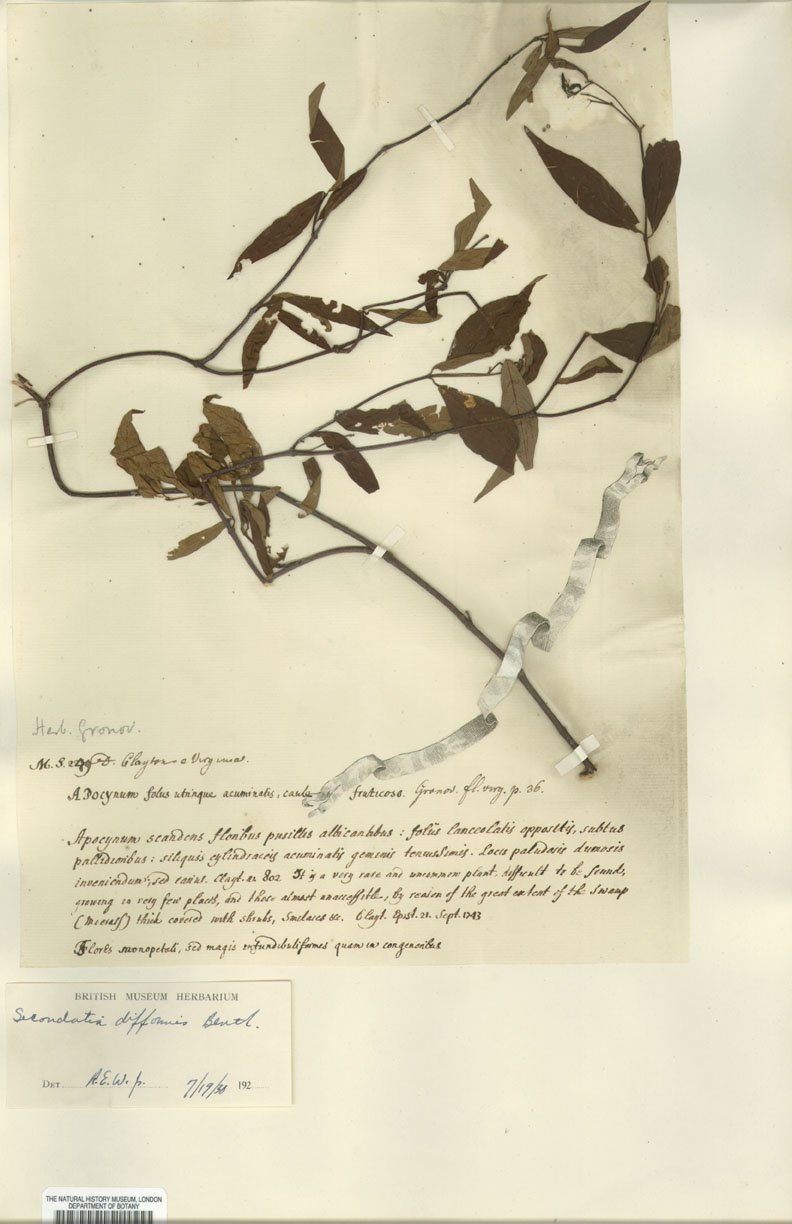 Herb. Gronov.
M. S. Clayton e Virginia.
Apocynum foliis utrinque acuminatis, caule fruticoso. Gronov. fl. virg. p. 36.
Apocynum scandens floribus pusillis albicantibus: foliis lanceolatis oppositis, subtus
pallidioribus: siliquis cylindraceis acuminatis geminis tenuissimis. Locis paludosis dumosis
inveniendum, sed rarius. Clayt. n. 802 It is a very rare and uncommon plant. difficult to be found,
growing in very few places, and those almost unaccessible, by reason of the great extent of the Swamp
thick covered with shrubs, Smilaces &c. Clayt. Epist. 21. Sept. 1743
Flores monopetali, sed magis infundibuliformes quam in congeneribus
BRITISH MUSEUM HERBARIUM
Secondatia difformis Benth.
DET. 7/19/38 192
THE NATURAL HISTORY MUSEUM, LONDON
DEPARTMENT OF BOTANY